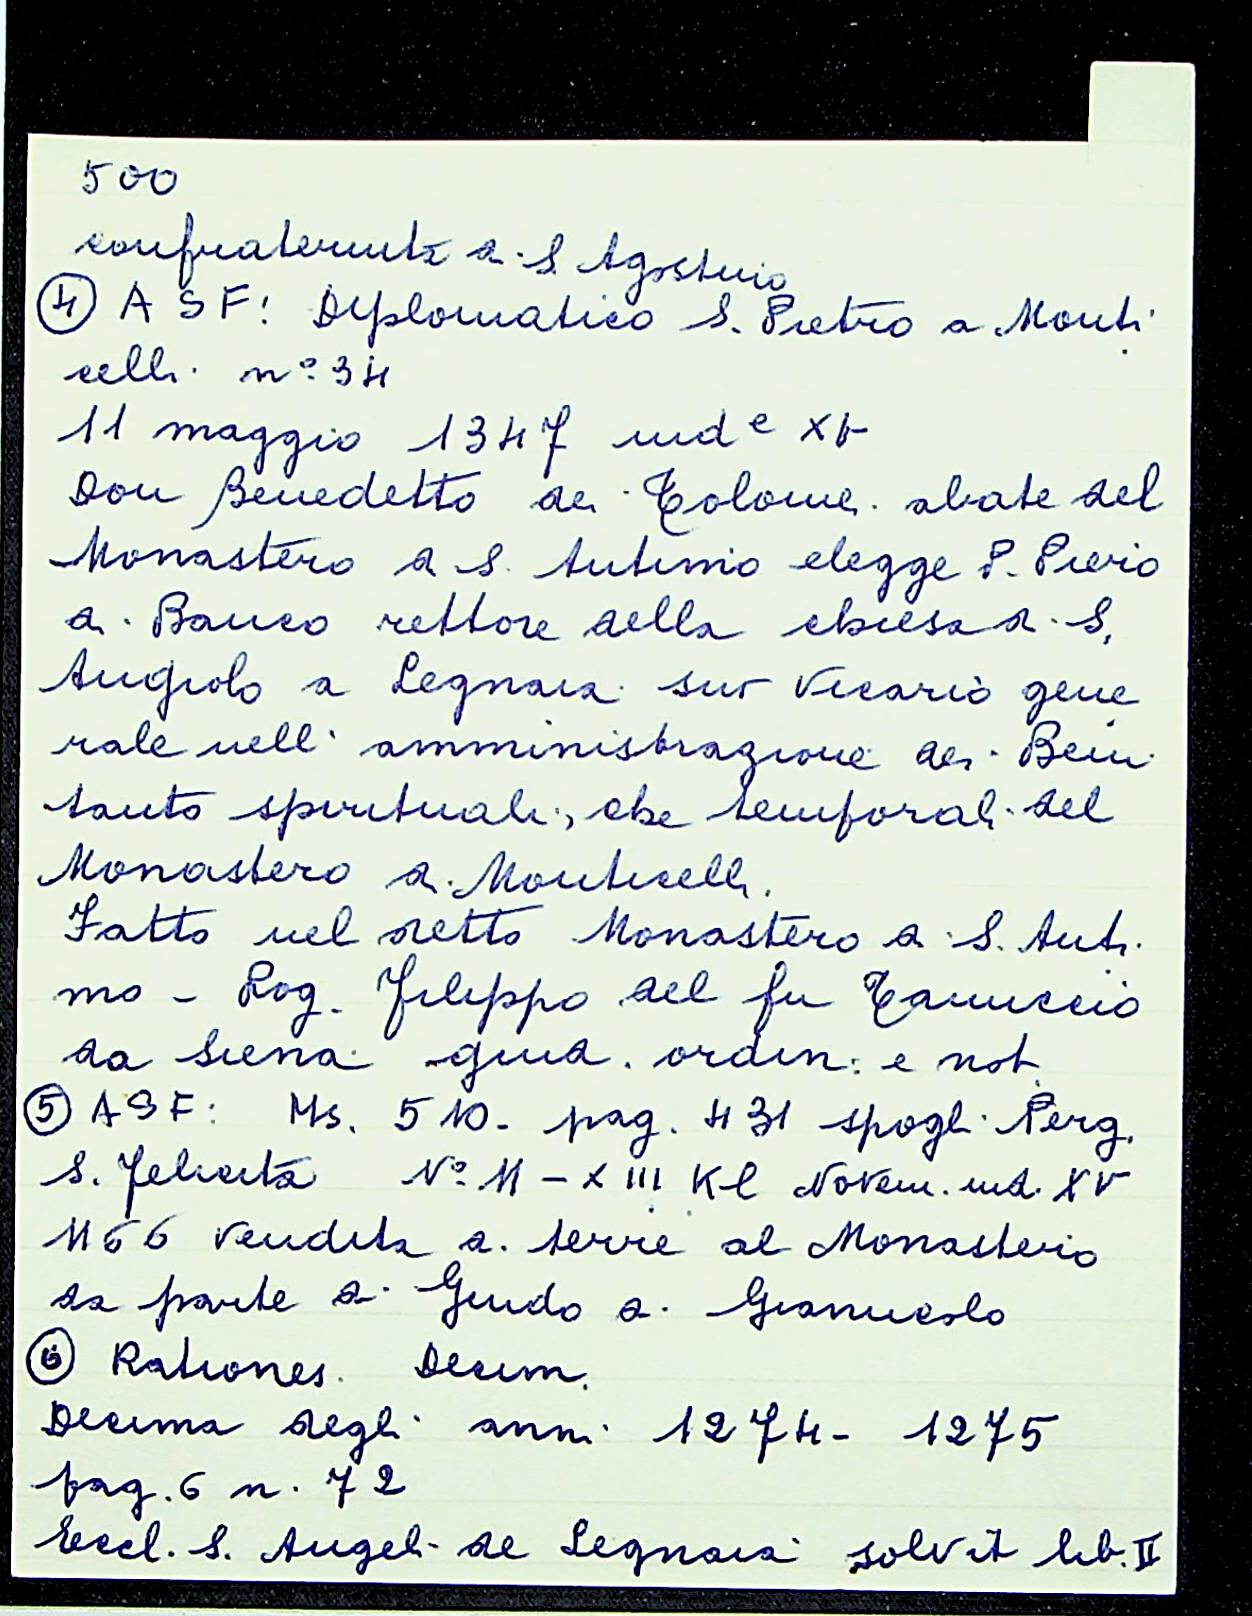 500
confraternità di S. Agostino
④ ASF: Diplomatico S. Pietro a Monti
celli n° 34
11 maggio 1347 ind e XV
Don Benedetto dei Tolomei abate del
Monastero di S. Antimo elegge P. Piero
di Banco rettore della chiesa di S.
Angiolo a Legnaia suo Vicario gene
rale nell' amministrazione dei Beni
tanto spirituali, che temporali del
Monastero di Monticelli.
Fatto nel detto Monastero di S. Anti
mo - Rog. Filippo del fu Tanuccio
da Siena giud. ordin: e not.
⑤ ASF: Ms. 510. pag. 431 spogli Perg.
S. Felicita N° 11 - XIII Kl Novem. ind. XV
1166 Vendita di terre al Monasterio
da parte di Guido di Gianucolo
⑥ Rationes Decim.
Decima degli anni 1274 - 1275
pag. 6 n. 72
Eccl. S. Angeli de Legnaia solvit lib. II